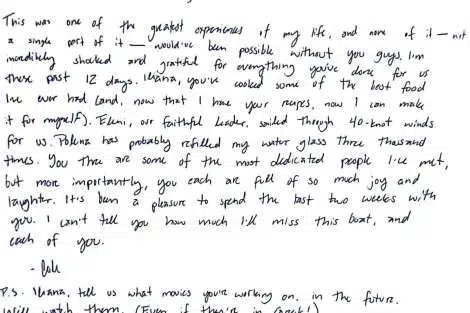 This was one of the greatest experiences of my life, and none of it — not
a single part of it — would've been possible without you guys. I'm
incredibly shocked and grateful for everything you've done for us
these past 12 days. Iliana, you've cooked some of the best food
I've ever had (and, now that I have your recipes, now I can make
it for myself). Eleni, our faithful leader, sailed through 40-knot winds
for us. Polina has probably refilled my water glass three thousand
times. You three are some of the most dedicated people I've met,
but more importantly, you each are full of so much joy and
laughter. It's been a pleasure to spend the last two weeks with
you. I can't tell you how much I'll miss this boat, and
each of you.
P.S. Iliana, tell us what movies you're working on, in the future.
We'll watch them. (Even if they're in Greek!)